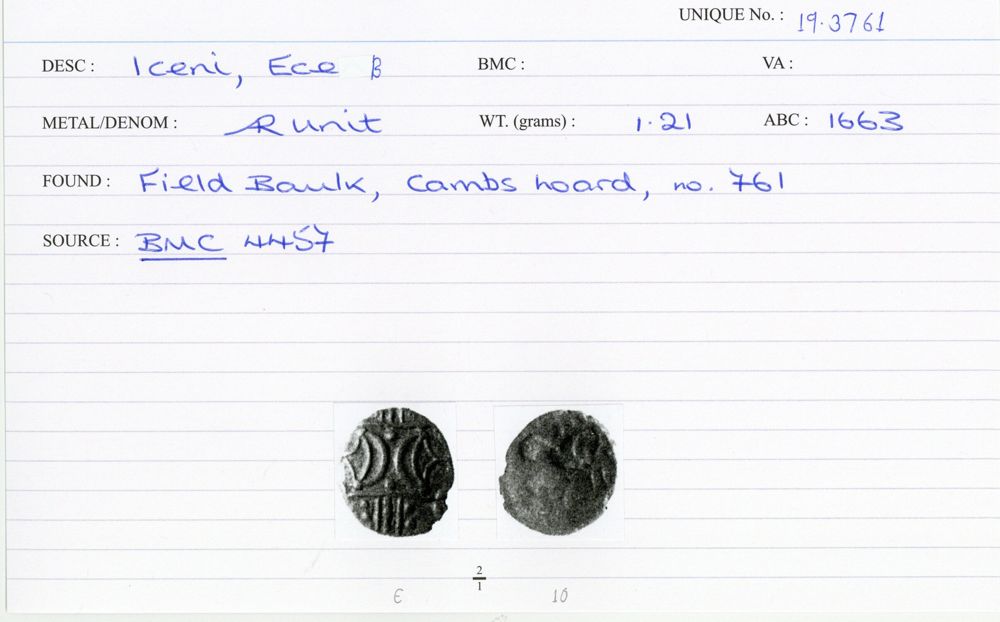 UNIQUE No. : 19.3761
DESC : Iceni, Ece B BMC : VA :
METAL/DENOM : AR unit WT. (grams) : 1.21 ABC : 1663
FOUND : Field Baulk, Cambs hoard, no. 761
SOURCE : BMC 4457
2
1
E 10